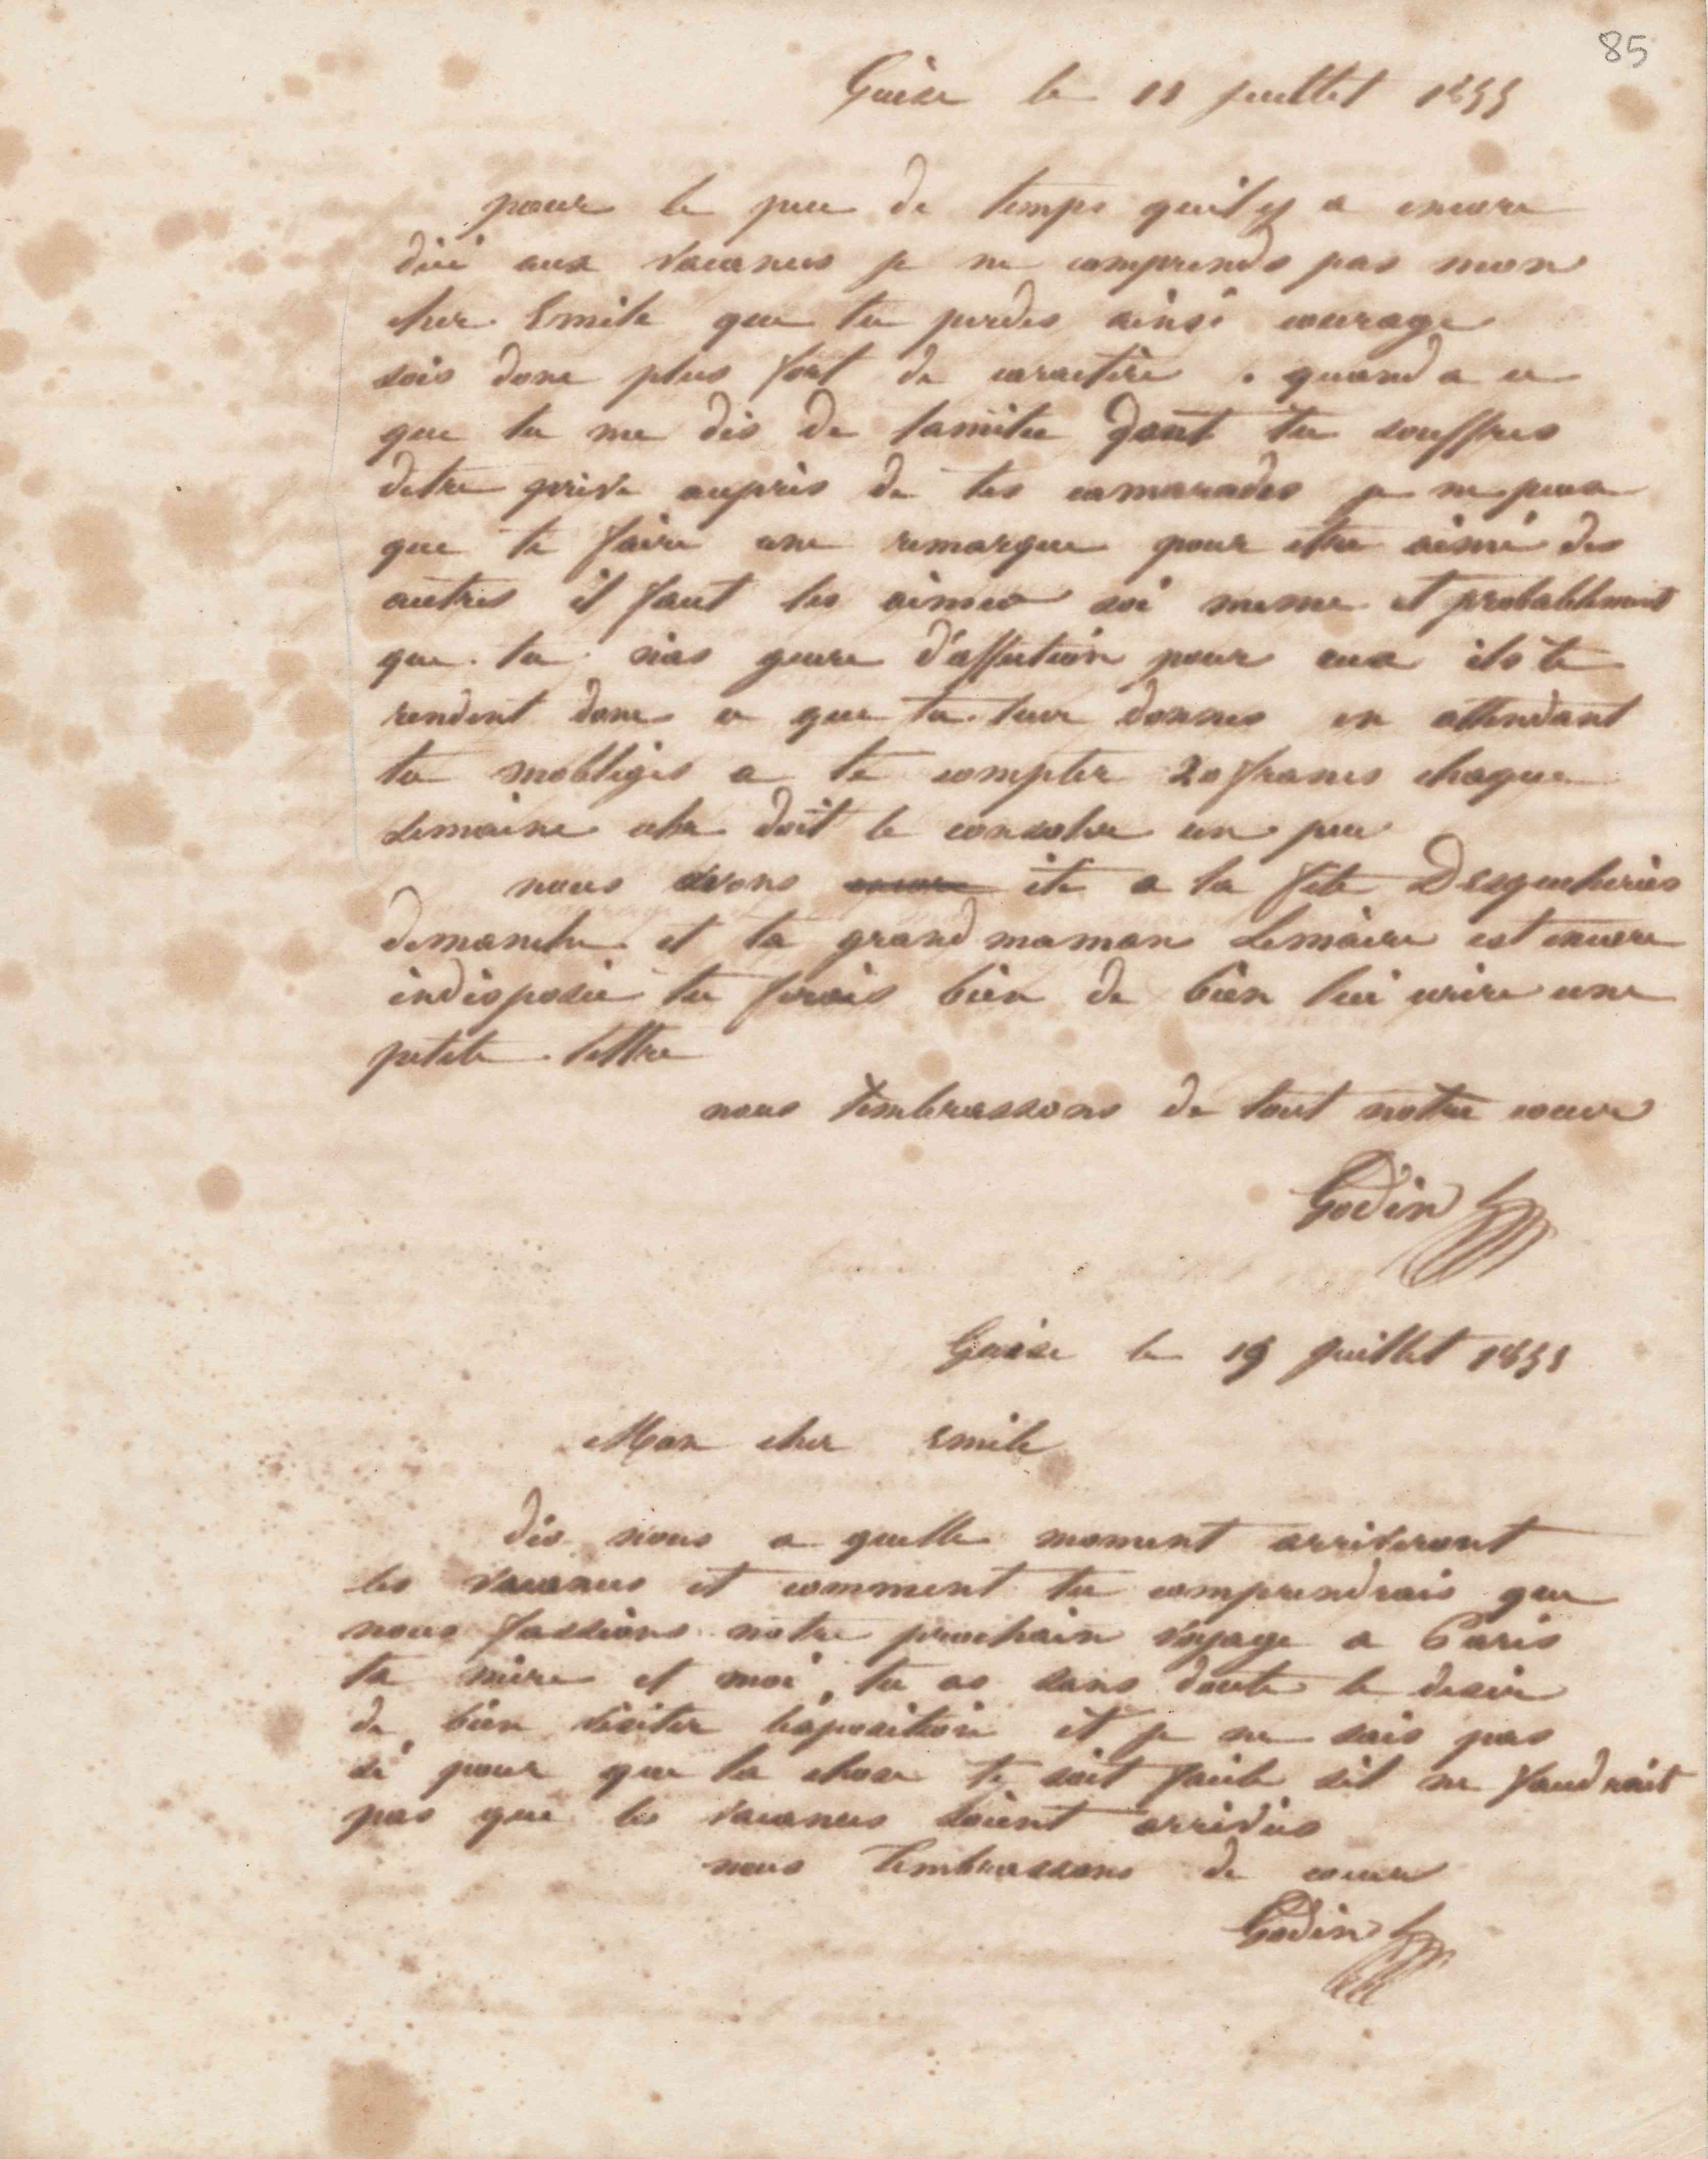 85
Guise le 11 juillet 1855
pour le peu de temps quil y a encore
dici aux vacances je ne comprends pas mon
cher Emile que tu perdes ainsi courage
sois donc plus fort de caractère . quand a ce
que tu me dis de lamitie dont tu souffres
detre privé auprès de tes camarades je ne puis
que te faire une remarque pour etre aimé des
autres il faut les aimer soi meme et probablement
que tu nas guere d'affection pour eux ils te
rendent donc ce que tu leur donnes en attendant
tu mobliges a te compter 20 francs chaque
semaine cela doit te consoler un peu
nous avons encore été a la fete Desqueheries
dimanche et ta grand maman Lemaire est encore
indisposée tu ferais bien de bien lui ecrire une
petite lettre
nous t'embrassons de tout notre coeur
Godin
Guise le 19 juillet 1855
Mon cher Emile
dis nous a quelle moment arriveront
les vacances et comment tu comprendrais que
nous fassions notre prochain voyage a Paris
ta mère et moi, tu as sans doute le desir
de bien visiter lexposition et je ne sais pas
si pour que la chose te soit facile sil ne faudrait
pas que les vacances soient arrivées
nous t'embrassons de coeur
Godin